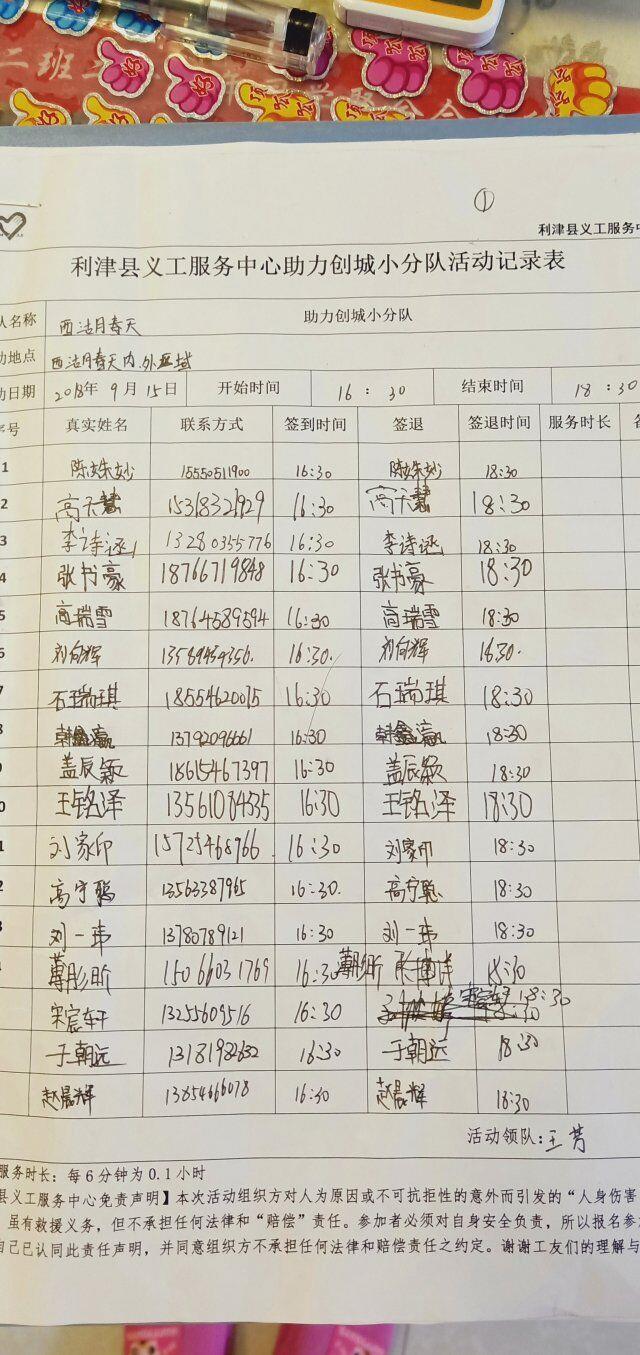 ①
利津县义工服务中
利津县义工服务中心助力创城小分队活动记录表
人名称 西沽月春天 助力创城小分队
动地点 西沽月春天内、外区域
动日期 2018年9月15日 开始时间 16:30 结束时间 18:30
序号 真实姓名 联系方式 签到时间 签退 签退时间 服务时长 备
1 陈姝妙 15550511900 16:30 陈姝妙 18:30
2 高天慧 15318321929 16:30 高天慧 18:30
3 李诗涵 13280355776 16:30 李诗涵 18:30
4 张书豪 18766719848 16:30 张书豪 18:30
5 商瑞雪 18764589594 16:30 商瑞雪 18:30
6 刘向辉 13589459356. 16:30. 刘向辉 16:30.
7 石瑞琪 18554620015 16:30 石瑞琪 18:30
8 韩鑫瀛 13792096661 16:30 韩鑫瀛 18:30
9 盖辰颖 18615467397 16:30 盖辰颖 18:30
0 王铭泽 13561084835 16:30 王铭泽 18:30
1 刘家印 15725468966. 16:30 刘家印 18:30
2 高宁聪 13563387965 16:30. 高宁聪 18:30
3 刘一玮 13780789121 16:30 刘一玮 18:30
15066031769 16:30 18:30
宋宸轩 13255609516 16:30 宋宸轩 18:30
于朝远 13181982632 16:30 于朝远 18:30
赵晨辉 13854666078 16:30 赵晨辉 18:30
活动领队:王芳
服务时长:每6分钟为0.1小时
县义工服务中心免责声明】本次活动组织方对人为原因或不可抗拒性的意外而引发的“人身伤害
，虽有救援义务，但不承担任何法律和“赔偿”责任。参加者必须对自身安全负责，所以报名参
自己已认同此责任声明，并同意组织方不承担任何法律和赔偿责任之约定。谢谢工友们的理解与